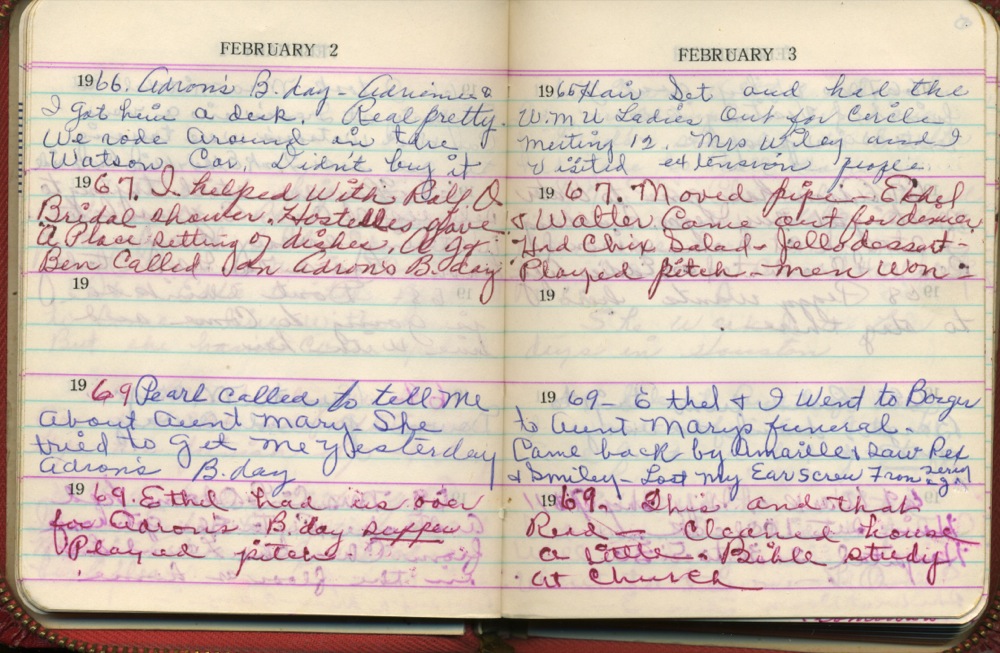 FEBRUARY 2
1966. Adron's B.day - Adrienne &
I got him a desk. Real pretty.
We rode around in the
Watson Car. Didn't buy it
1967. I helped with
Bridal shower. Hostesses gave
a Place setting of dishes.
Ben Called on Adron's B.day
19
1969 Pearl called to tell me
about Aunt Mary. She
tried to get me yesterday
Adron's B.day
1969. Ethel had us over
for Adron's B'day supper
Played pitch
FEBRUARY 3
1965 Hair Set and had the
W.M.U Ladies Out for Circle
meeting 12. Mrs Wiley and I
visited extension people.
1967. Moved pipe - Ethel
& Walter Came out for dinner
Had Chix Salad - Jello dessert -
Played pitch - men won.
19
1969 - Ethel & I Went to Borger
to Aunt Mary's funeral -
Came back by Amarillo & saw Rex
& Smiley - Lost my Ear screw From
1969. This and that
Read - Cleaned house
a little. Bible study
at Church